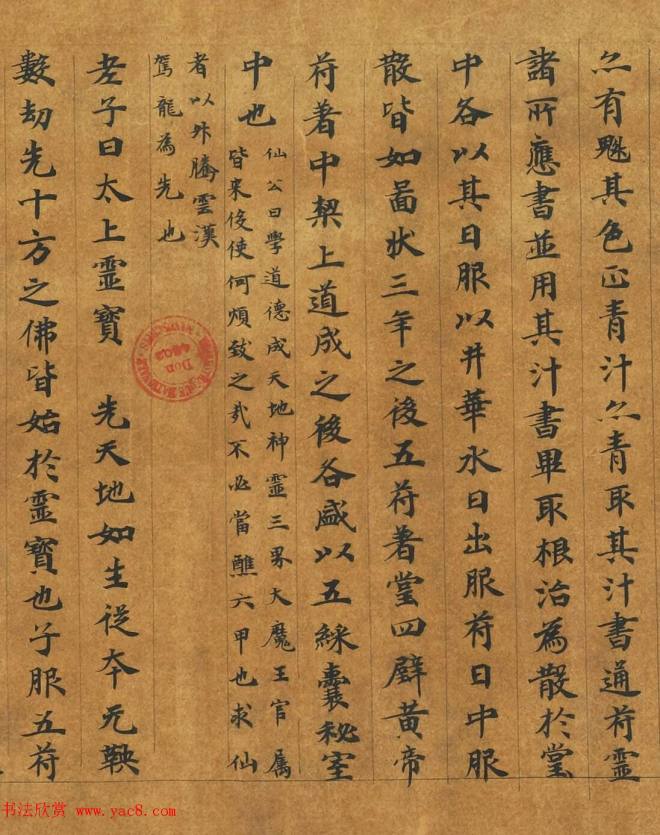 亦有魁其色正青汁亦青取其汁書通符靈
諸所應書並用其汁書畢取根治為散於堂
中各以其日服以井華水日出服符日中服
散皆如啚狀三年之後五符著堂四壁黃帝
符著中樑上道成之後各盛以五綵囊秘室
中也
仙公曰學道德成天地神靈三界大魔王官属
皆來伇使何煩致之哉不必當醮六甲也求仙
者以升騰雲漢
駕龍為先也
老子曰太上靈寶 先天地如生從本无鞅
數劫先十方之佛皆始於靈寶也子服五符
Don
4502
书法欣赏 www.yac8.com